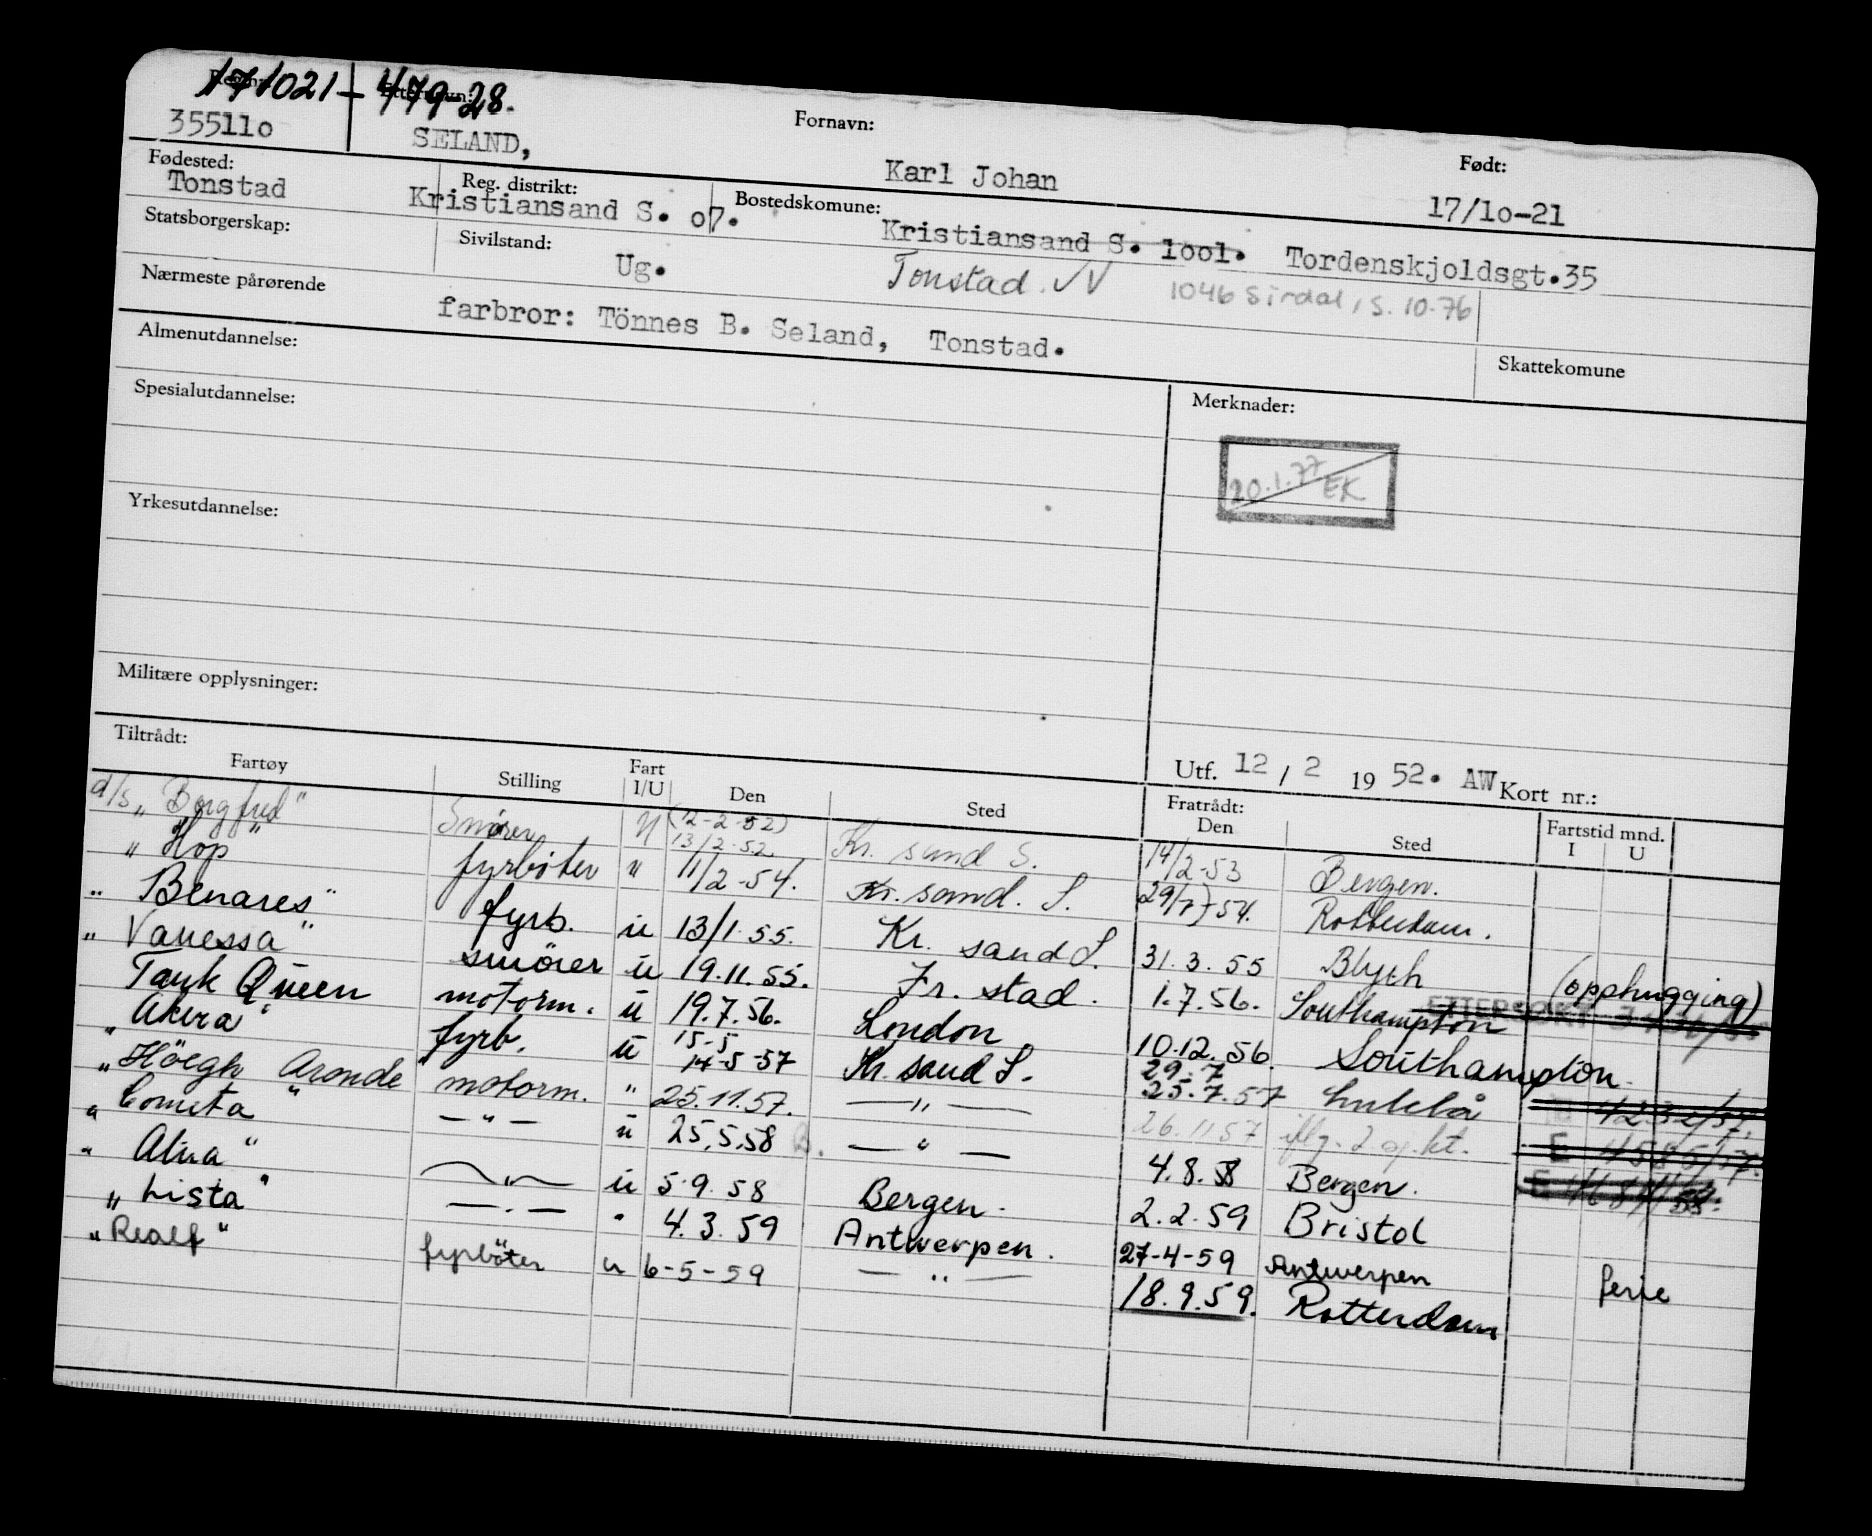 Reg.nr. 171021 - Etternavn: 479-28.
355110 SELAND, Fornavn: Karl Johan Født: 17/10-21
Fødested: Tonstad Reg. distrikt: Kristiansand S. o7. Bostedskomune: Kristiansand S. 1001. Tordenskjoldsgt.35
Statsborgerskap: Sivilstand: Ug. Tonstad. VV 1046 Sirdal, S. 10-76
Nærmeste pårørende farbror: Tönnes B. Seland, Tonstad.
Almenutdannelse: Skattekomune
Spesialutdannelse: Merknader:
20.1.77 EK
Yrkesutdannelse:
Militære opplysninger:
Utf. 12 / 2 19 52. AW Kort nr.:
Tiltrådt: Fratrådt: Fartstid mnd.
Fartøy Stilling Fart I/U Den Sted Den Sted I U
d/s "Borgfred" Smører U (12-2-52) 13/2-52 Kr. sand S. 14/2-53 Bergen.
" "Hop" fyrbøter " 11/2-54. Kr. sand. S. 29/7-54. Rotterdam.
" Benares" fyrb. u 13/1-55. Kr. sand S. 31.3.55 Blyth (opphugging)
" Vanessa" smörer u 19.11.55. Fr. stad. 1.7.56. Southampton ETTERSØKT
Tank Queen motorm. u 19.7.56. London 10.12.56 Southampton.
" Akera" fyrb. u 15-5 14-5-57 Kr. sand S. 29.7 25.7.57 Luleå
" Höegh Aronde motorm. " 25.11.57. — " — 26.11 57 iflg. 2 og. kt. E
" Cometa " — " — u 25.5.58 B. — " — 4.8.58 Bergen. E
" Alva " — " — u 5.9.58 Bergen. 2.2.59 Bristol
" Lista " — " — " 4.3.59 Antwerpen. 27-4-59 Antwerpen ferie
" Realf " fyrböter u 6-5-59 — " — 18.9.59. Rotterdam